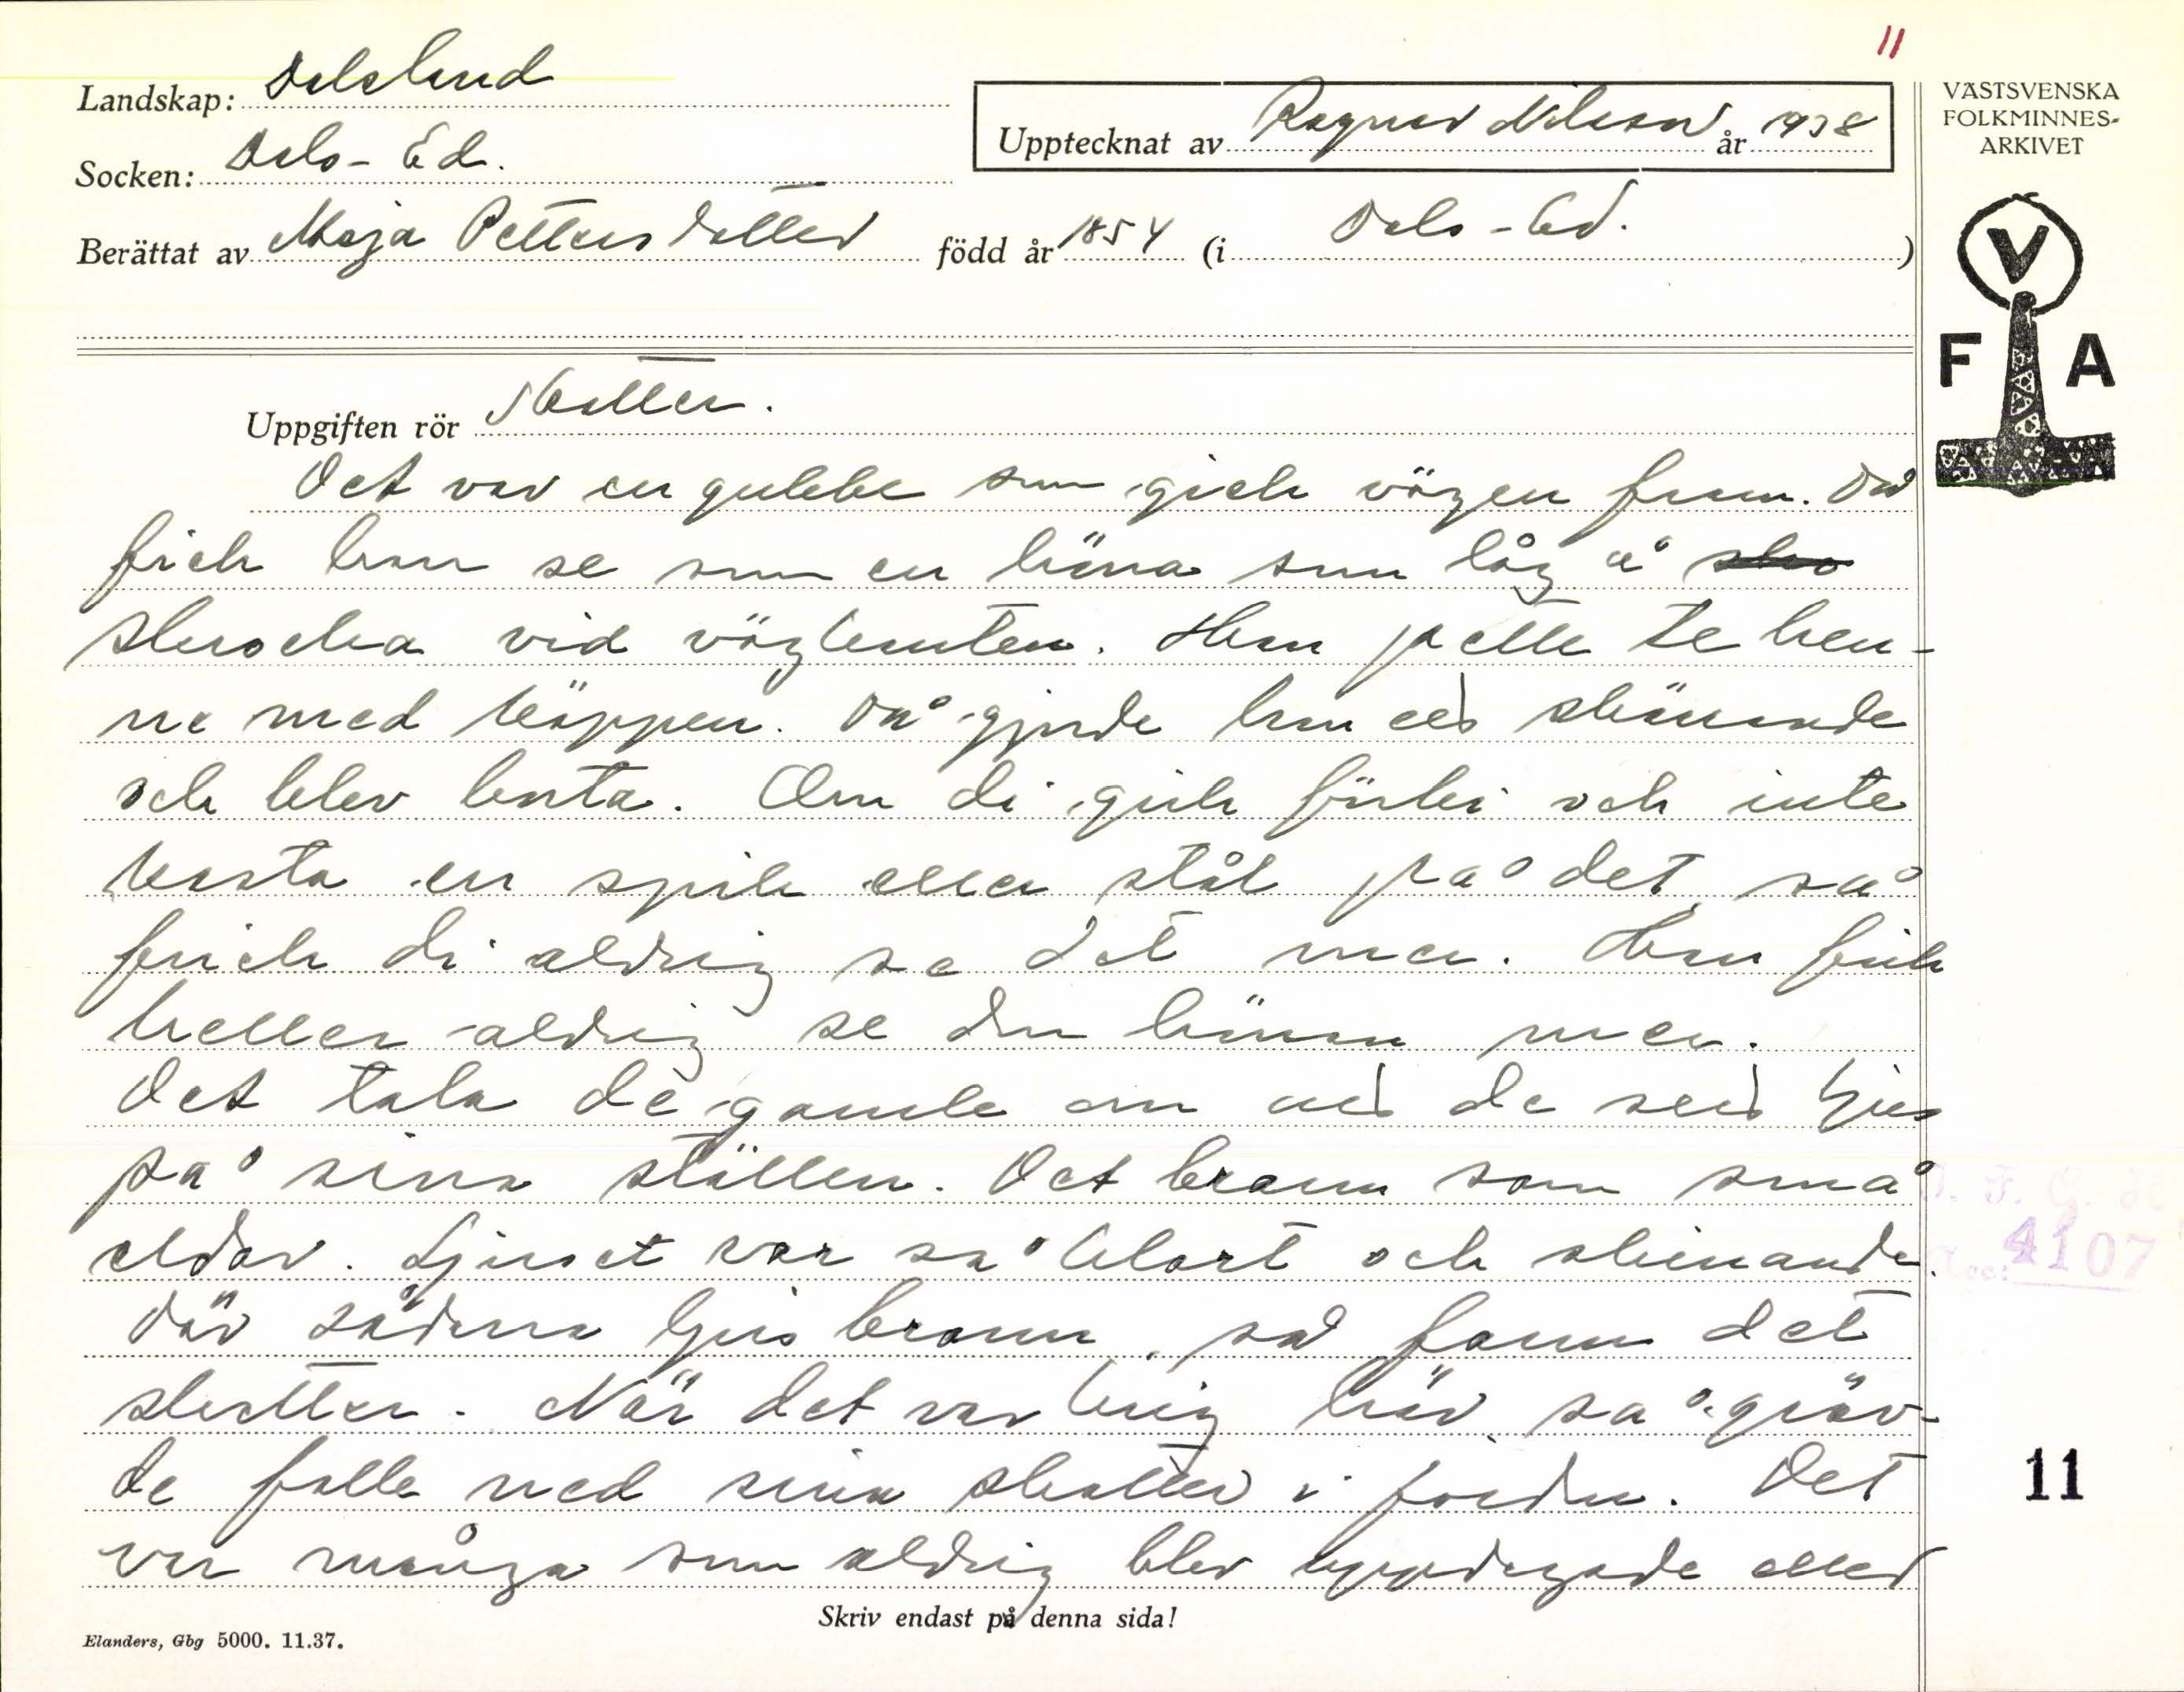 11
Landskap: Dalsland
Socken: Dals-Ed.
Upptecknat av Ragnar Nilsson år 1938
Berättat av Maja Pettersdotter född år 1854 (i Dals-Ed.)
VÄSTSVENSKA
FOLKMINNES-
ARKIVET
V
F A
Uppgiften rör Skatter.
Det var en gubbe som gick vägen fram. Då
fick han se som en höna som låg å sko
skrocka vid vägkanten. Han pette te hen-
ne med käppen. Då gjorde hon ett skönande
och blev borta. Om di gick förbi och inte
kasta en spik eller stål på det, så
fick di aldrig se det mer. Han fick
heller aldrig se den hönan mer.
Det tala de gamle om att de sett ljus
på sina ställen. Det brann som små
eldar. Ljuset var så klart och skinande.
Där sådana ljus brann, så fanns det
skatter. När det var krig här, så gräv-
de folk ned sina skatter i jorden. Det
var många som aldrig blev uppdragade eller
Skriv endast på denna sida!
Elanders, Gbg 5000. 11.37.
4107
11